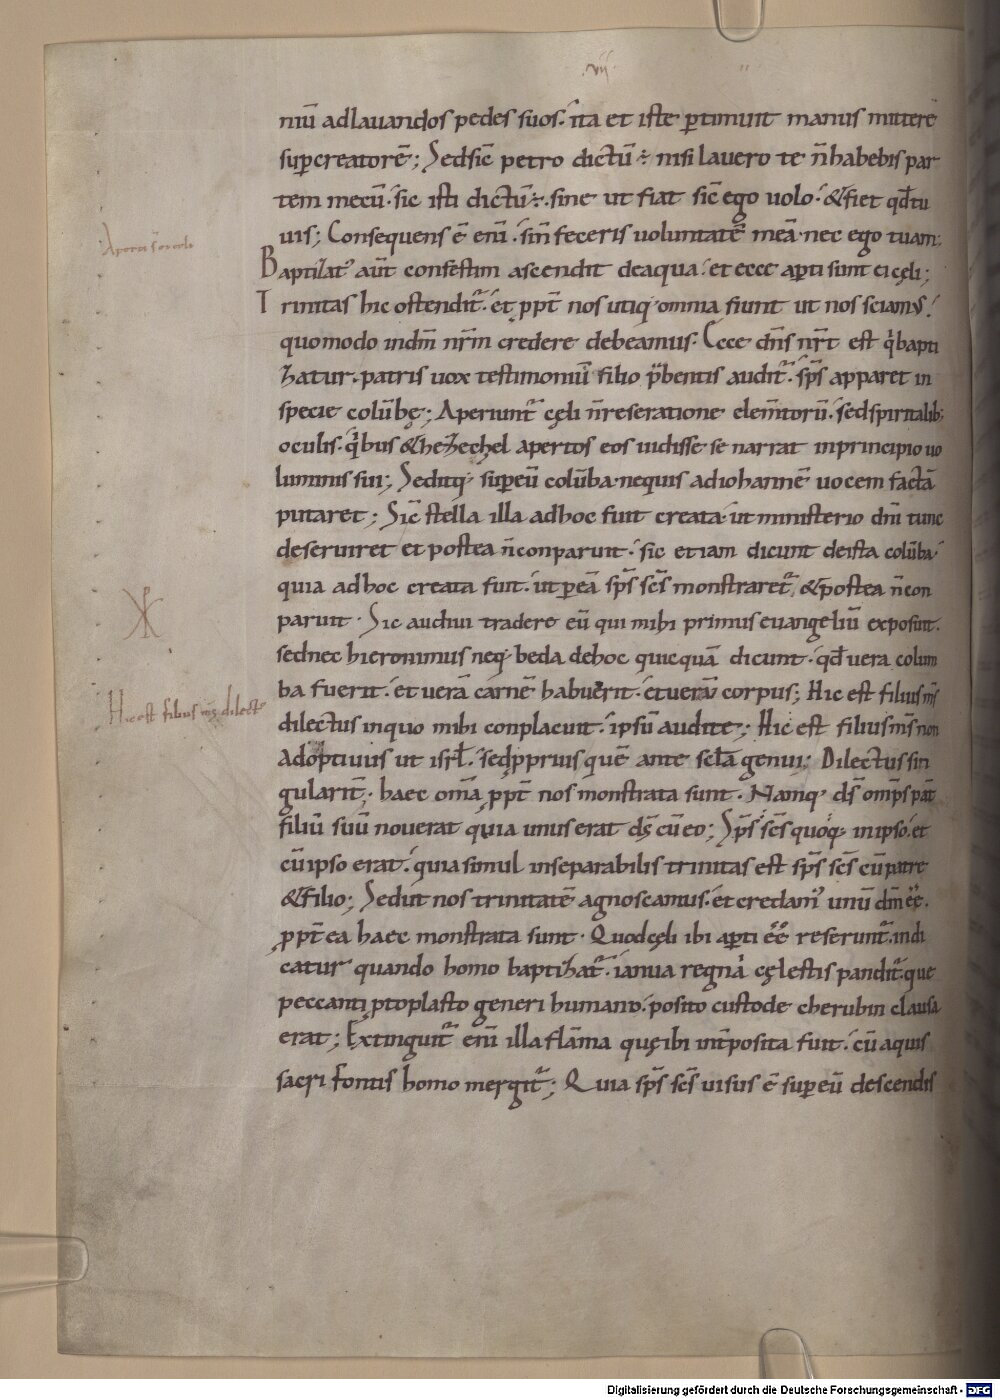 .vii.
niū adlauandos pedes suos. ita et iste ꝑtimuit manus mittere
suꝑcreatorē; Sedsic̄ petro dictū: nisi lauero te n̄habebis par
tem mecū. sic isti dictū: sine ut fiat sic̄ ego uolo. &fiet qđtu
uis; Consequens ē eni̅. sin̄ feceris uoluntatē meā. nec ego tuam;
Aperti s̄t ei celi
Baptizat᷒ aūt confestim ascendit deaqua. et ecce aꝑti sunt ei cęli;
Trinitas hic ostendit᷑. et ꝓpt̄ nos utiq; omnia fiunt ut nos sciam᷒
quomodo indm̄ nr̄m credere debeamus. Ecce dn̄s nr̄t est q̇bapti
zatur. patris uox testimoniū filio p̄bentis audit᷑. sp̄s apparet in
specie colūbę; Aperiunt᷑ cęli n̄reseratione elem̄torū. sed spiritalib;
oculis. q̇bus &hezechel apertos eos uidisse se narrat inprincipio uo
luminis sui; Seditq; suꝑeū colūba. nequis adiohannē uocem factā
putaret; Sic̄ stella illa adhoc fuit creata. ut ministerio dn̄i tunc
deseruiret et postea n̄conparuit. sic etiam dicunt deista colūba.
quia adhoc creata fuit. ut ꝑeā sp̄s sc̄s monstraret᷑, &postea n̄con
paruit. Sic audiui tradere eū qui mihi primus euangeliū exposuit.
sednec hieronimus neq; beda dehoc quicquā dicunt. qđ uera colum
ba fuerit. et uerā carnē habuerit. et uerū corpus; Hic est filius ms̄
Hic est filius ms̄ dilect᷒
dilectus inquo mihi conplacuit. ipsū audite; Hic est filius ms̄ non
adoptiuus ut isrl̄. sedꝓprius quē ante scl̄a genui; Dilectus sin
gularit̄. haec om̄a ꝓpt̄ nos monstrata sunt. Namq; ds̄ omp̄s pat̄
filiū suū nouerat quia unus erat ds̄ cū eo; Sp̄s sc̄s quoq; inipso. et
cū ipso erat. quia simul inseparabilis trinitas est sp̄s sc̄s cū patre
&filio; Sedut nos trinitatē agnoscamus. et credam᷒ unū dm̄ ēē.
ꝓpt̄ea haec monstrata sunt. Quodcęli ibi aꝑti ēē referunt᷑. indi
catur quando homo baptizat᷑. ianua regni cęlestis pandit᷑. que
peccanti ꝓtoplasto generi humano. posito custode cherubin clausa
erat; Extinguit᷑ eni̅ illa flāma quę ibi int̄posita fuit. cū aquis
sacri fontis homo mergit᷑; Quia sp̄s sc̄s uisus ē suꝑ eū descendis
Digitalisierung gefördert durch die Deutsche Forschungsgemeinschaft - DFG